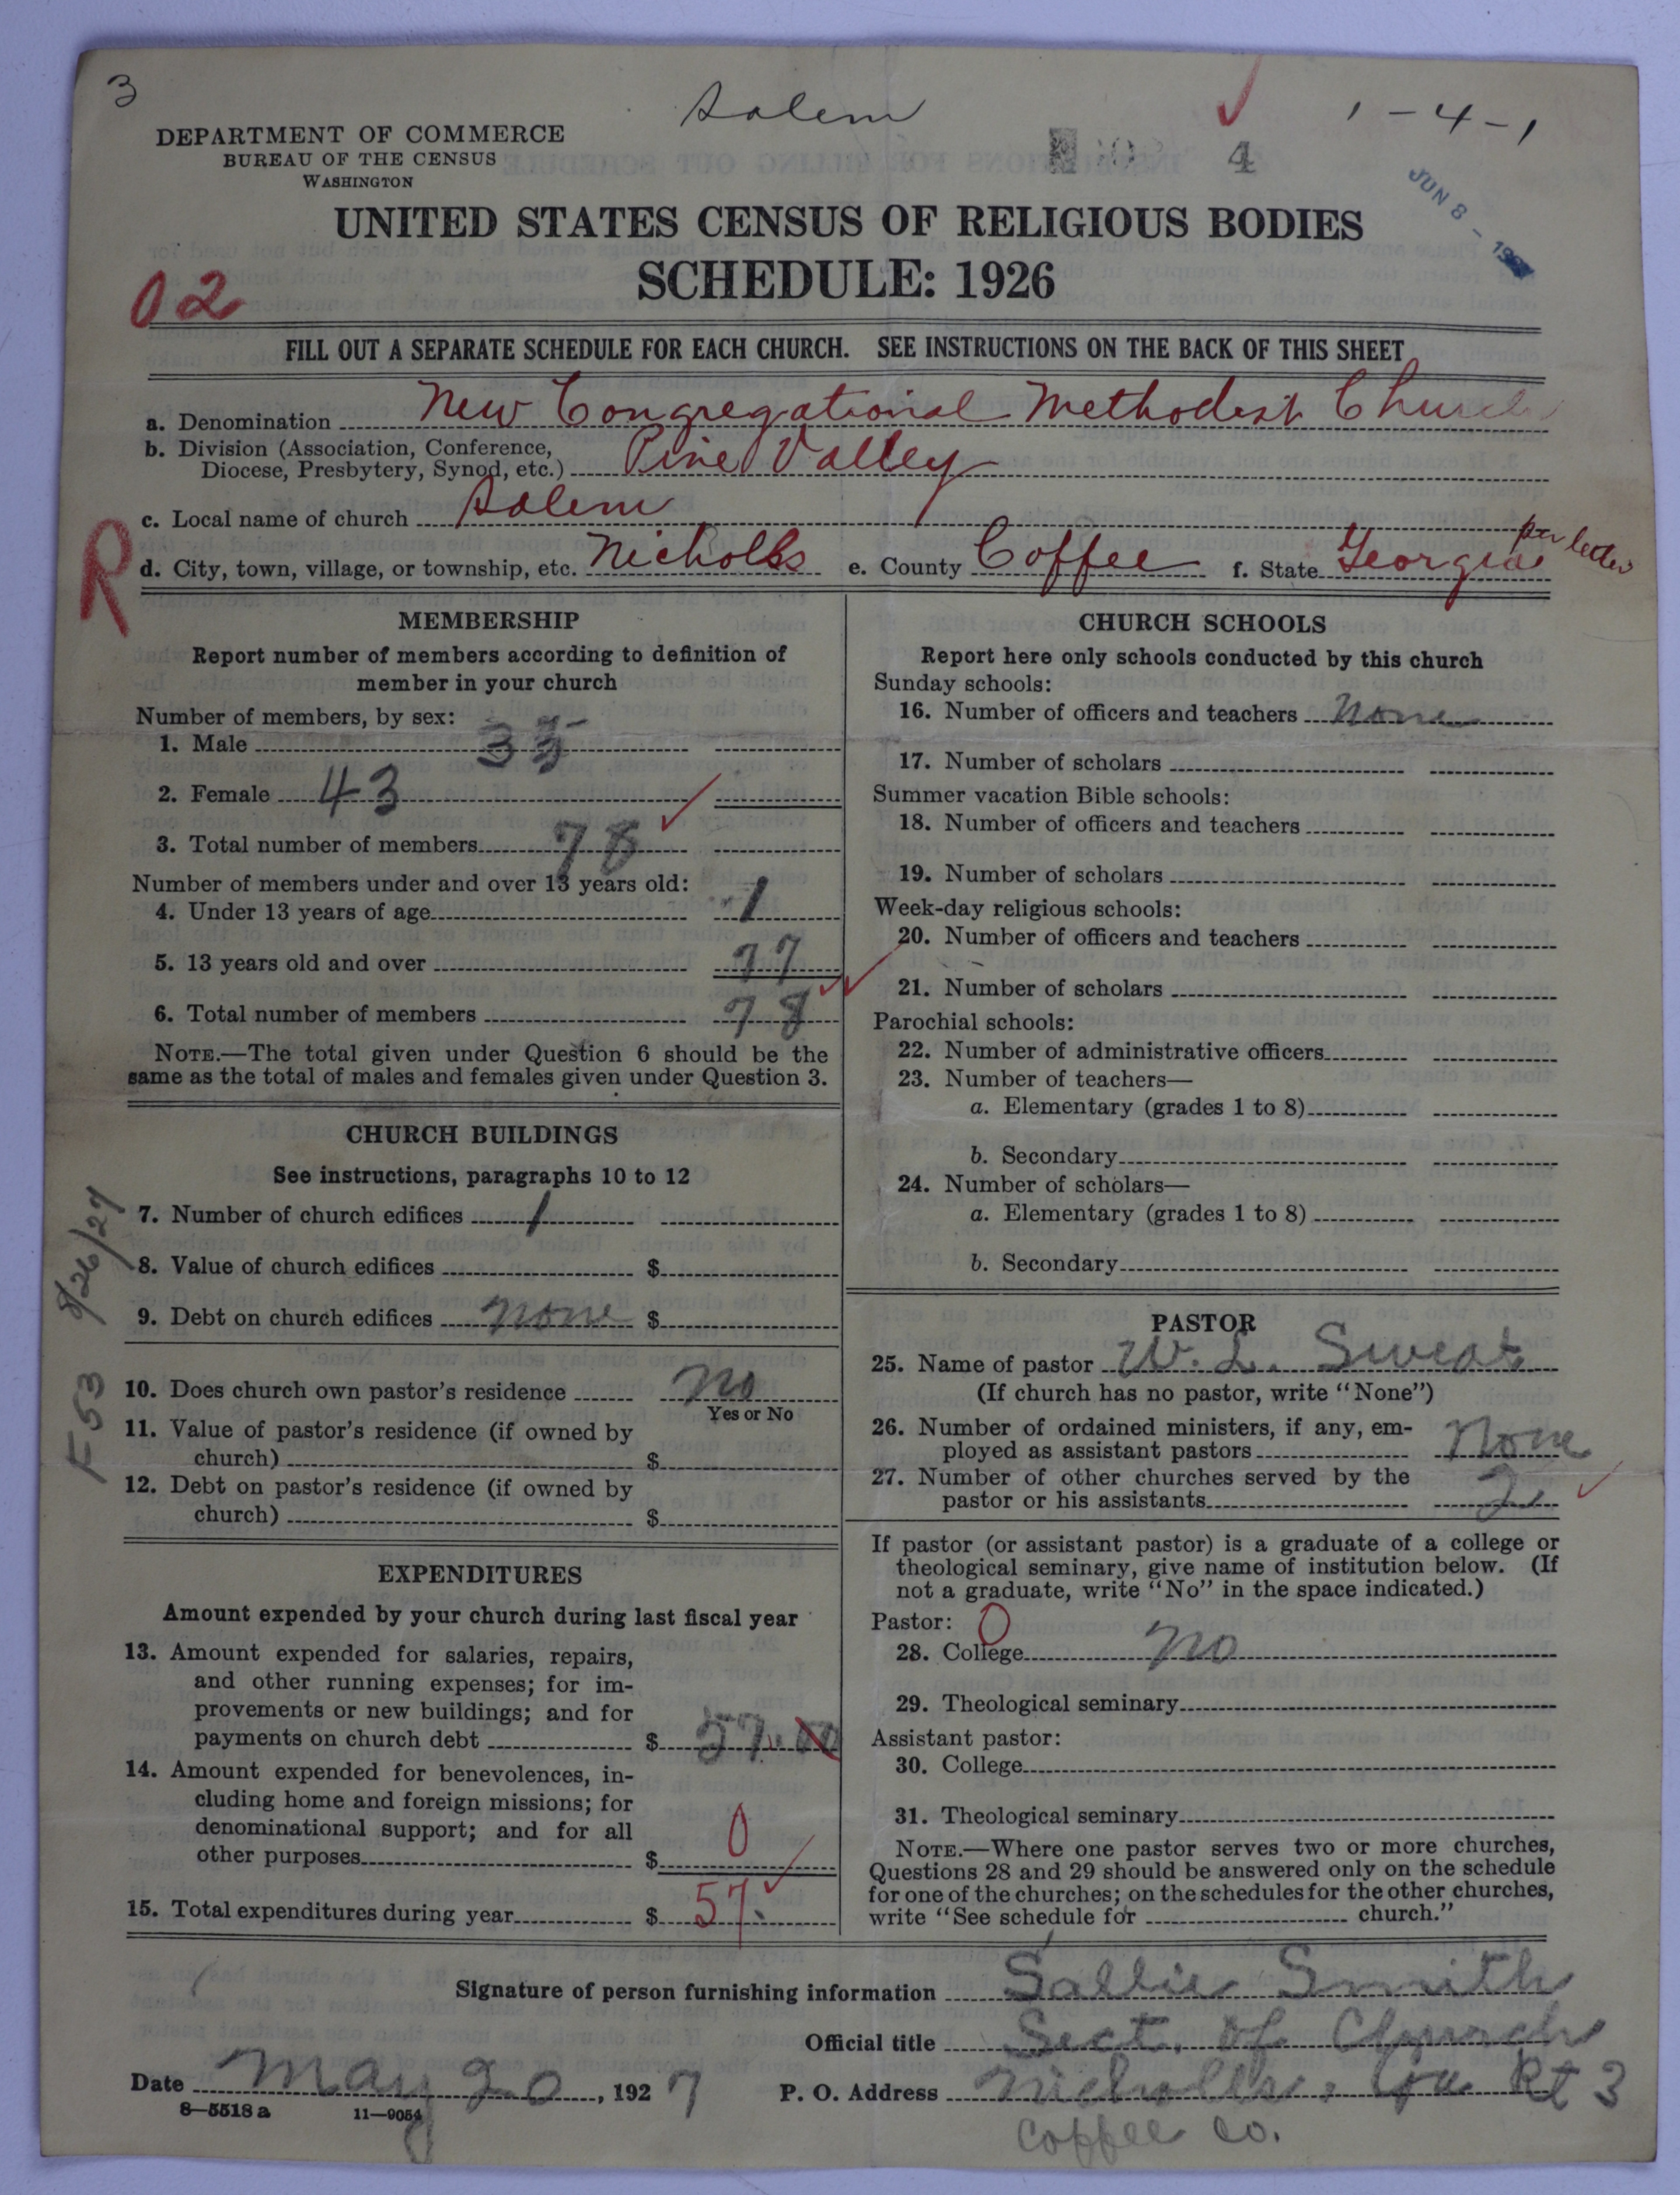 3
Salem
1-4-1
4
JUN 8 - 192
DEPARTMENT OF COMMERCE
BUREAU OF THE CENSUS
WASHINGTON
UNITED STATES CENSUS OF RELIGIOUS BODIES
SCHEDULE: 1926
02
FILL OUT A SEPARATE SCHEDULE FOR EACH CHURCH. SEE INSTRUCTIONS ON THE BACK OF THIS SHEET
a. Denomination New Congregational Methodist Church
b. Division (Association, Conference,
Diocese, Presbytery, Synod, etc.) Pine Valley
c. Local name of church Salem
R
per letter
d. City, town, village, or township, etc. Nicholls e. County Coffee f. State Georgia
MEMBERSHIP
Report number of members according to definition of
member in your church
Number of members, by sex:
1. Male 35
2. Female 43
3. Total number of members 78
Number of members under and over 13 years old:
4. Under 13 years of age 1
5. 13 years old and over 77
6. Total number of members 78
NOTE.—The total given under Question 6 should be the
same as the total of males and females given under Question 3.
CHURCH BUILDINGS
See instructions, paragraphs 10 to 12
7. Number of church edifices 1
8. Value of church edifices $
9. Debt on church edifices none $
10. Does church own pastor's residence no
Yes or No
11. Value of pastor's residence (if owned by
church) $
12. Debt on pastor's residence (if owned by
church) $
F 53 8/26/27
EXPENDITURES
Amount expended by your church during last fiscal year
13. Amount expended for salaries, repairs,
and other running expenses; for im-
provements or new buildings; and for
payments on church debt $ 57.00
14. Amount expended for benevolences, in-
cluding home and foreign missions; for
denominational support; and for all
other purposes $ 0
15. Total expenditures during year $ 57.
CHURCH SCHOOLS
Report here only schools conducted by this church
Sunday schools:
16. Number of officers and teachers none
17. Number of scholars
Summer vacation Bible schools:
18. Number of officers and teachers
19. Number of scholars
Week-day religious schools:
20. Number of officers and teachers
21. Number of scholars
Parochial schools:
22. Number of administrative officers
23. Number of teachers—
a. Elementary (grades 1 to 8)
b. Secondary
24. Number of scholars—
a. Elementary (grades 1 to 8)
b. Secondary
PASTOR
25. Name of pastor W. L. Sweat
(If church has no pastor, write "None")
26. Number of ordained ministers, if any, em-
ployed as assistant pastors None
27. Number of other churches served by the
pastor or his assistants 2
If pastor (or assistant pastor) is a graduate of a college or
theological seminary, give name of institution below. (If
not a graduate, write "No" in the space indicated.)
Pastor: 0
28. College no
29. Theological seminary
Assistant pastor:
30. College
31. Theological seminary
NOTE.—Where one pastor serves two or more churches,
Questions 28 and 29 should be answered only on the schedule
for one of the churches; on the schedules for the other churches,
write "See schedule for church."
Signature of person furnishing information Sallie Smith
Official title Sect. of Church
Date May 20, 1927 P. O. Address Nicholls, Ga Rt 3
8—5518 a 11—9054
Coffee Co.